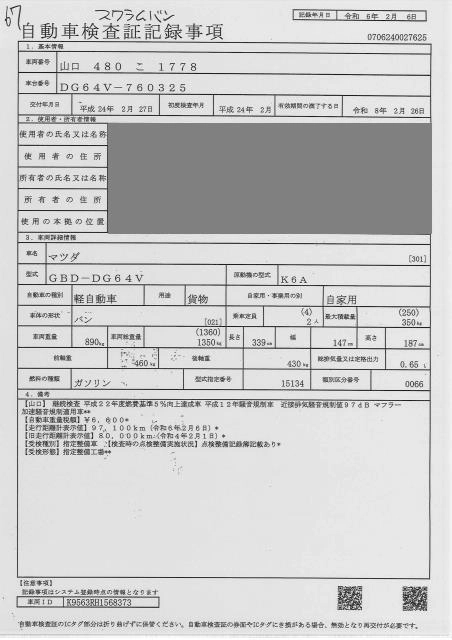 67
スクラムバン
自動車検査証記録事項
記録年月日 令和 6年 2月 6日
0706240027625
1．基本情報
車両番号 山口 480 こ 1778
車台番号 DG64V-760325
交付年月日 平成 24年 2月 27日 初度検査年月 平成 24年 2月 有効期間の満了する日 令和 8年 2月 26日
2．使用者・所有者情報
使用者の氏名又は名称
使用者の住所
所有者の氏名又は名称
所有者の住所
使用の本拠の位置
3．車両詳細情報
車名 マツダ [301]
型式 GBD-DG64V 原動機の型式 K6A
自動車の種別 軽自動車 用途 貨物 自家用・事業用の別 自家用
車体の形状 バン [021] 乗車定員 (4) 2人 最大積載量 (250) 350kg
車両重量 890kg 車両総重量 (1360) 1350kg 長さ 339cm 幅 147cm 高さ 187cm
前軸重 460kg 後軸重 430kg 総排気量又は定格出力 0.65 L
燃料の種類 ガソリン 型式指定番号 15134 類別区分番号 0066
4．備考
【山口】 継続検査 平成22年度燃費基準5％向上達成車 平成12年騒音規制車 近接排気騒音規制値97dB マフラー
加速騒音規制適用車**
【自動車重量税額】￥6,600*
【走行距離計表示値】97,100km（令和6年2月6日）*
【旧走行距離計表示値】80,000km（令和4年2月1日）*
【受検種別】指定整備車 【検査時の点検整備実施状況】点検整備記録簿記載あり*
【受検形態】指定整備工場**
【注意事項】
記録事項はシステム登録時点の情報となります
車両ID K9563RH1568373
自動車検査証のICタグ部分は折り曲げずに保管ください。自動車検査証の券面やICタグにき損がある場合、無効となり再交付が必要です。